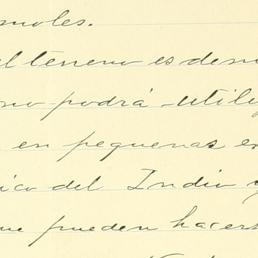 moles.
el terreno es des
no podrá utili
en pequenas e
ico del Indio y
ue pueden hacers